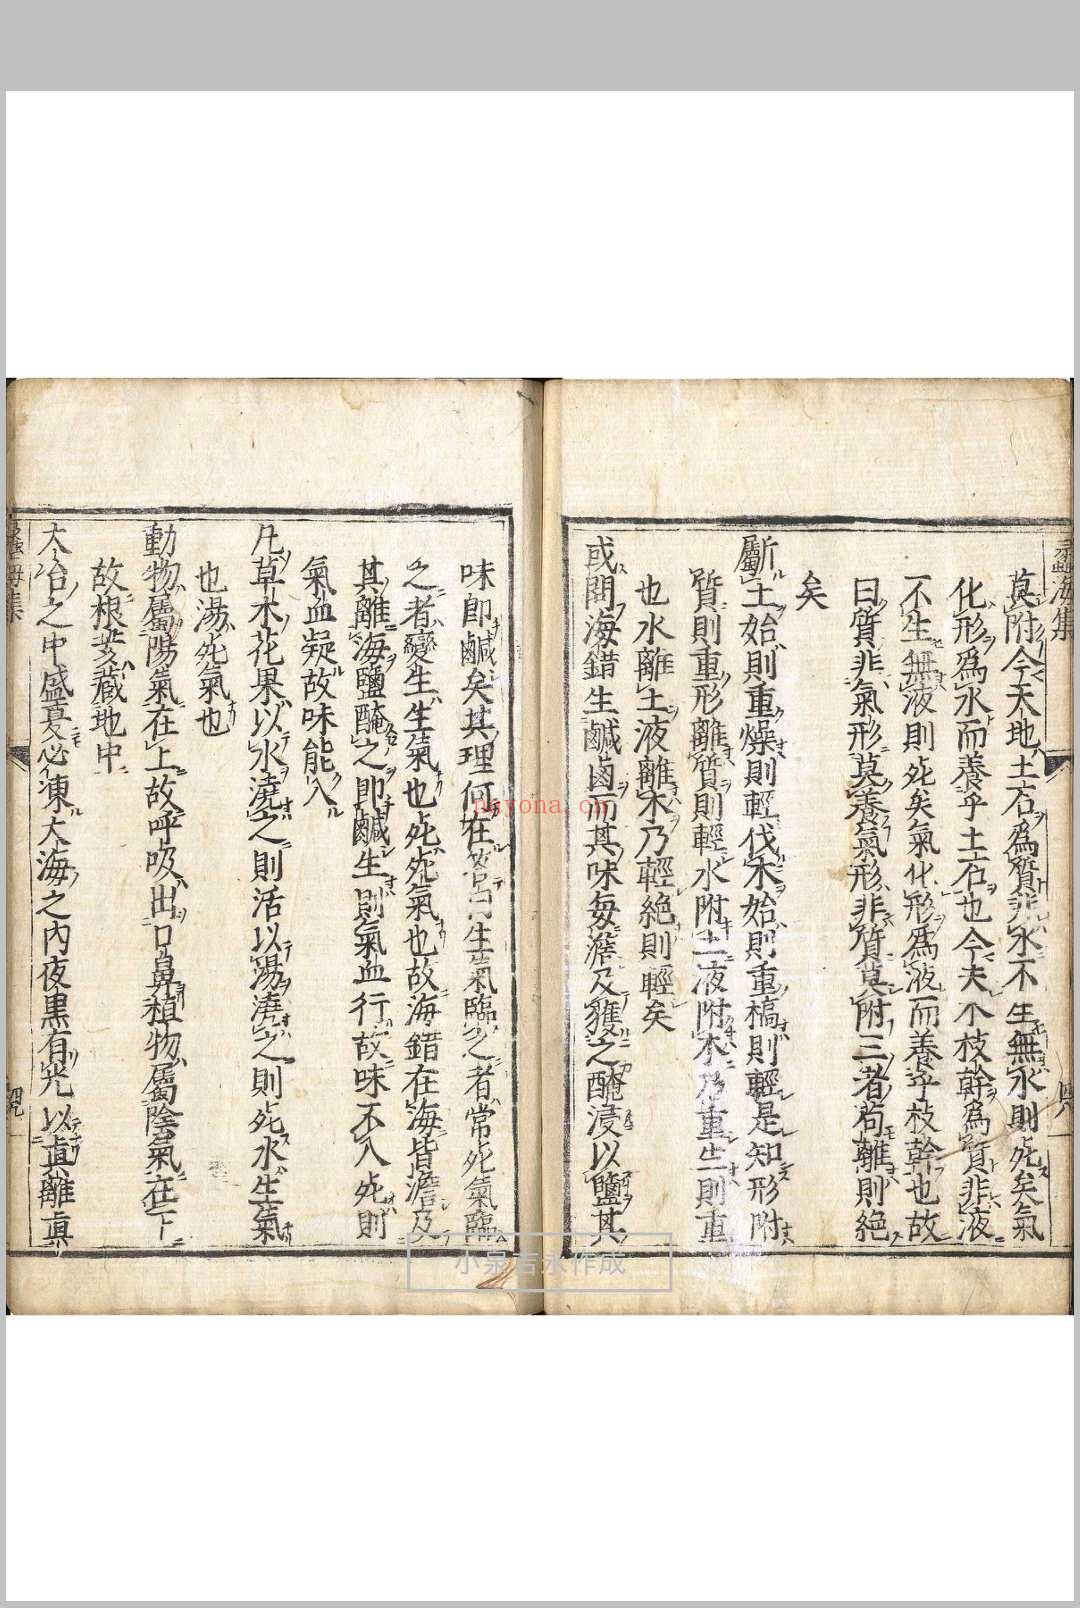 莫附今天地土石爲質非水不生無水則死矣氣
化形爲水而養乎土石也今夫木枝幹爲質非液
不生無液則死矣氣化形爲液而養乎枝幹也故
曰質非氣形莫養氣形非質莫附三者苟離則絶
矣
斸土始則重燥則輕伐木始則重槁則輕是知形附
質則重形離質則輕水附土液附木乃重生則重
也水離土液離木乃輕絶則輕矣
或問海錯生鹹鹵而其味每澹及獲之醃浸以鹽其
味即鹹矣其理何在答曰生氣臨之者常死氣臨
之者變生生氣也死死氣也故海錯在海皆澹及
其離海鹽醃之即鹹生則氣血行故味不入死則
氣血凝故味能入
凡草木花果以水澆之則活以湯澆之則死水生氣
也湯死氣也
動物屬陽氣在上故呼吸出口鼻植物屬陰氣在下
故根荄藏地中
大冶之中盛夏必凍大海之内夜黒有光以眞離眞
海集
小泉吉永作成
nayona.cn